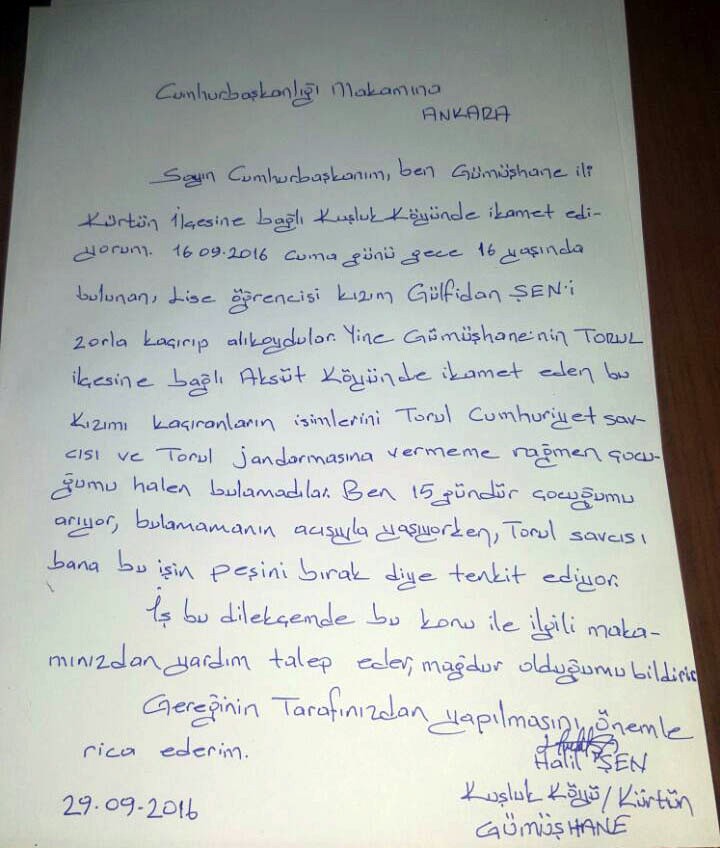 Cumhurbaşkanlığı Makamına
ANKARA
Sayın Cumhurbaşkanım, ben Gümüşhane ili
Kürtün İlçesine bağlı Kuşluk Köyünde ikamet edi-
yorum. 16.09.2016 cuma günü gece 16 yaşında
bulunan, Lise öğrencisi kızım Gülfidan ŞEN'i
zorla kaçırıp alıkoydular. Yine Gümüşhane'nin TORUL
ilçesine bağlı Aksüt Köyünde ikamet eden bu
kızımı kaçıranların isimlerini Torul Cumhuriyet sav-
cısı ve Torul jandarmasına vermeme rağmen çocu-
ğumu halen bulamadılar. Ben 15 gündür çocuğumu
arıyor, bulamamanın acısıyla yaşıyorken, Torul savcısı
bana bu işin peşini bırak diye tenkit ediyor.
İş bu dilekçemde bu konu ile ilgili maka-
mınızdan yardım talep eder, mağdur olduğumu bildirir
Gereğinin Tarafınızdan yapılmasını, önemle
rica ederim.
Halil ŞEN
29.09.2016
Kuşluk Köyü/Kürtün
GÜMÜŞHANE